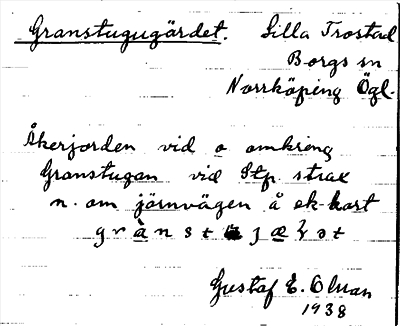 Granstugugärdet. Lilla Trostad
Borgs sn
Norrköping Ögl.
Åkerjorden vid o omkring
Granstugan vid Stp strax
n. om järnvägen å ek kart
Gustaf E. Olman
1938